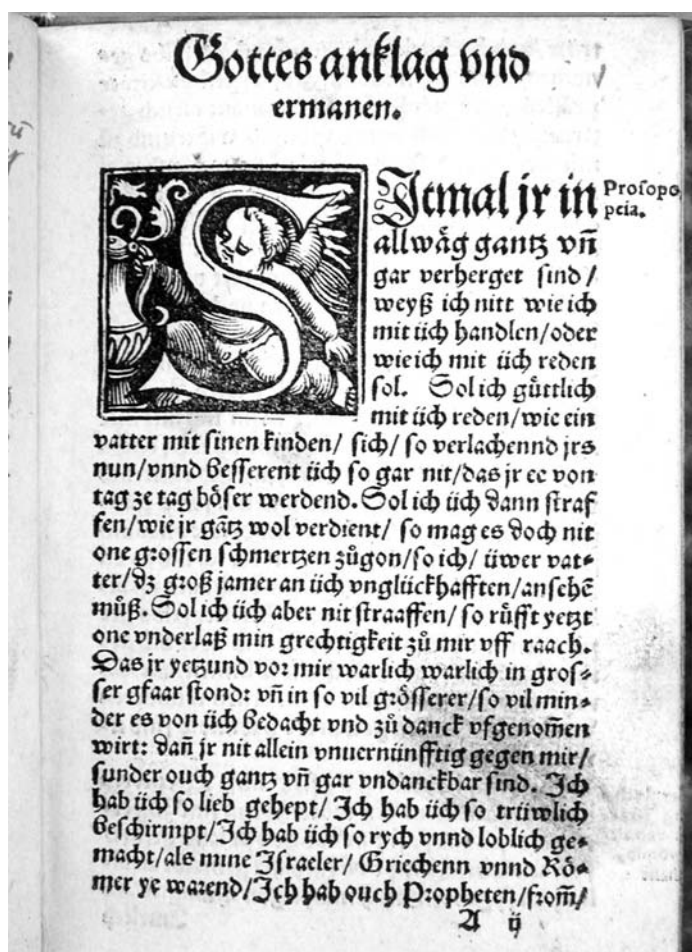 Gottes anklag vnd
ermanen.
SItmal jr in
Prosopo
peia.
allwäg gantz vñ
gar verherget sind/
weyß ich nitt wie ich
mit üch handlen/oder
wie ich mit üch reden
sol. Sol ich güttlich
mit üch reden/wie ein
vatter mit sinen kinden/ sich/ so verlachennd jrs
nun/vnnd besserent üch so gar nit/das jr ee von
tag ze tag böser werdend. Sol ich üch dann straf
fen/wie jr gãtz wol verdient/ so mag es doch nit
one grossen schmertzen zůgon/so ich/ üwer vat⸗
ter/dz groß jamer an üch vnglückhafften/ansehẽ
můß. Sol ich üch aber nit straaffen/ so růfft yetzt
one vnderlaß min grechtigkeit zů mir vff raach.
Das jr yetzund vor mir warlich warlich in gros⸗
ser gfaar stond: vñ in so vil grösserer/so vil min⸗
der es von üch bedacht vnd zů danck vfgenom̃en
wirt: dañ jr nit allein vnuernünfftig gegen mir/
sunder ouch gantz vñ gar vndanckbar sind. Ich
hab üch so lieb gehept/ Ich hab üch so trüwlich
beschirmpt/Ich hab üch so rych vnnd loblich ge⸗
macht/als mine Israeler/ Griechenn vnnd Rö⸗
mer ye warend/Ich hab ouch Propheten/from̃/
A ij